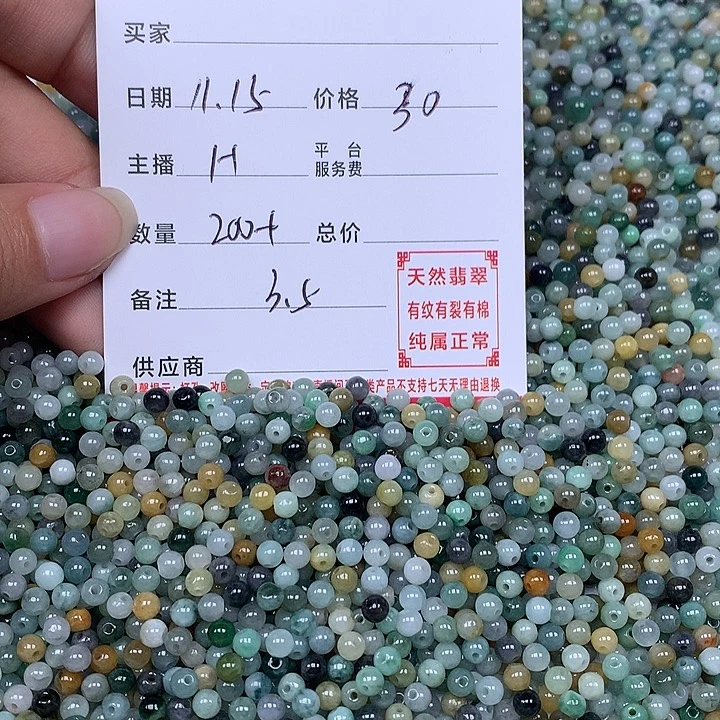 买家
日期 11.15 价格 30
主播 H 平台服务费
数量 200+ 总价
备注 3.5
天然翡翠
有纹有裂有棉
纯属正常
供应商
类产品不支持七天无理由退换